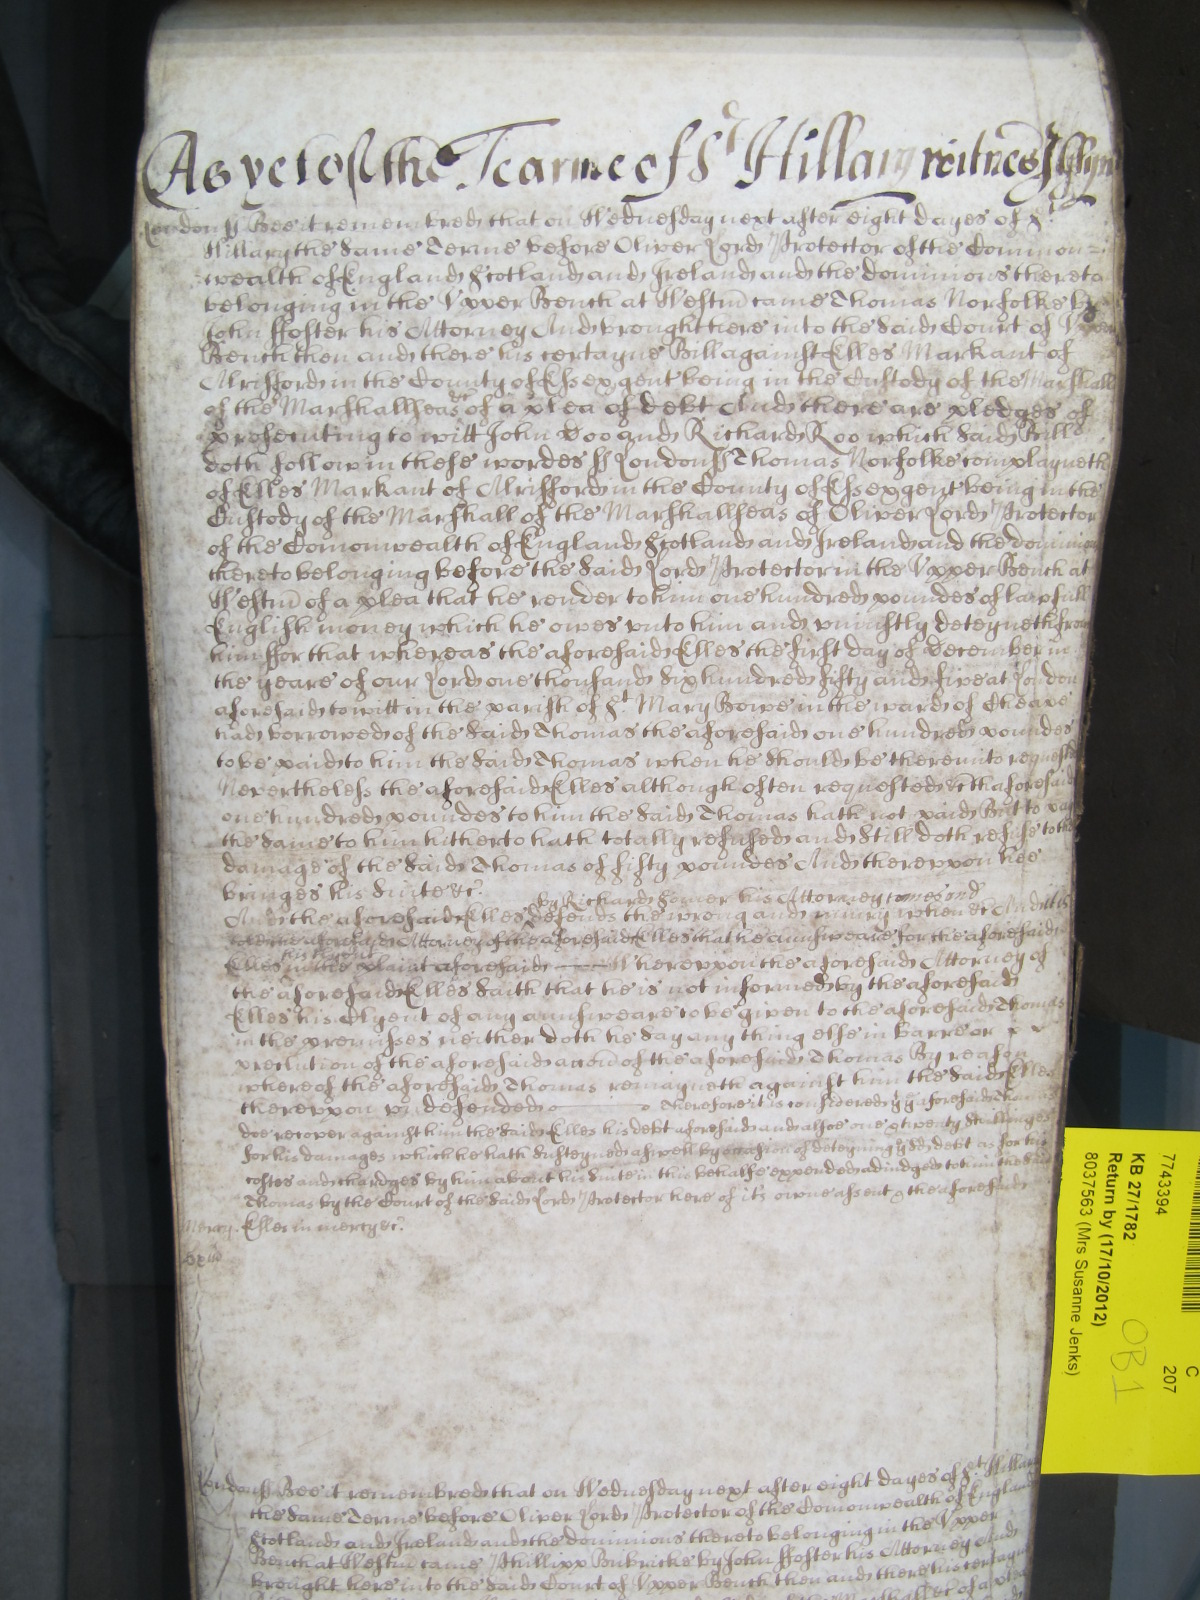 As yet of the Tearme of St Hillary witnes
London ss Bee it remembred that on Wednesday next after eight dayes of St
Hillary the same Terme before Oliver Lord Protector of the Common=
wealth of England Scotland and Ireland and the dominions thereto
belonging in the Vpper Bench at Westm̄ came Thomas Norfolke by
John ffoster his Attorney And brought here into the said Court of Vpper
Bench then and there his certayne Bill against Elles Markant of
Alrifford in the County of Essex gent being in the Custody of the Marshall
of the Marshallseas &c of a plea of debt And there are pledges of
prosecuting to witt John Doo and Richard Roo which said Bill
doth follow in these wordes ss London ss Thomas Norfolke complayneth
of Elles Markant of Alrifford in the County of Essex gent being in the
Custody of the Marshall of the Marshallseas of Oliver Lord Protector
of the Comonwealth of England Scotland and Ireland and the dominions
thereto belonging before the said Lord Protector in the Vpper Bench at
Westm̄ of a plea that he render to him one hundred poundes of lawfull
English money which he owes vnto him and vniustly deteyneth from
him ffor that whereas the aforesaid Elles the first day of December in
the yeare of our Lord one thousand six hundred fifty and five at London
aforesaid to witt in the parish of St Mary Bowe in the ward of Cheape
had borrowed of the said Thomas the aforesaid one hundred poundes
to be paid to him the said Thomas when he should be therevnto requested
Nevertheless the aforesaid Elles although often requested &c the aforesaid
one hundred poundes to him the said Thomas hath not paid But to pay
the same to him hitherto hath totally refused and still doth refuse to the
damage of the said Thomas of fifty poundes And therevpon hee
bringes his suite &c.
And the aforesaid Elles by Richard Somer his Attorney comes and
defends the wrong and iniury when &c And the
aforesaid Attorney of the aforesaid Elles that he annsweare for the aforesaid
Elles in the plaint aforesaid Wherevpon the aforesaid Attorney of
the aforesaid Elles saith that he is not informed by the aforesaid
Elles his Clyent of any annsweare to be given to the aforesaid Thomas
in the premisses neither doth he say any thing else in barre or
preclution of the aforesaid accon̄ of the aforesaid Thomas By reason
whereof the aforesaid Thomas remayneth against him the said Elles
therevpon vndefended Therefore it is considered yt ye aforesaid Thomas
doe recover against him the said Elles his debt aforesaid and alsoe one & twenty shillinges
for his damages which he hath susteyned aswell by occasion of deteyning ye sd debt as for his
costes and chardges by him about his suite in this behalfe expended adiudged to him the said
Thomas by the Court of the said Lord Protector here of it's owne assent & the aforesaid
Mercy. Elles in mercy &c.
London ss Bee it remembred that on Wednesday next after eight dayes of St Hillary
the same Terme before Oliver Lord Protector of the Comonwealth of England
Scotland and Ireland and the dominions thereto belonging in the Vpper
Bench at Westm̄ came Phillipp Bubricke by John ffoster his Attorney And
brought here into the said Court of Vpper Bench then and there his certayne
7743394 C 207
KB 27/1782
Return by (17/10/2012)
8037563 (Mrs Susanne Jenks)
OB1